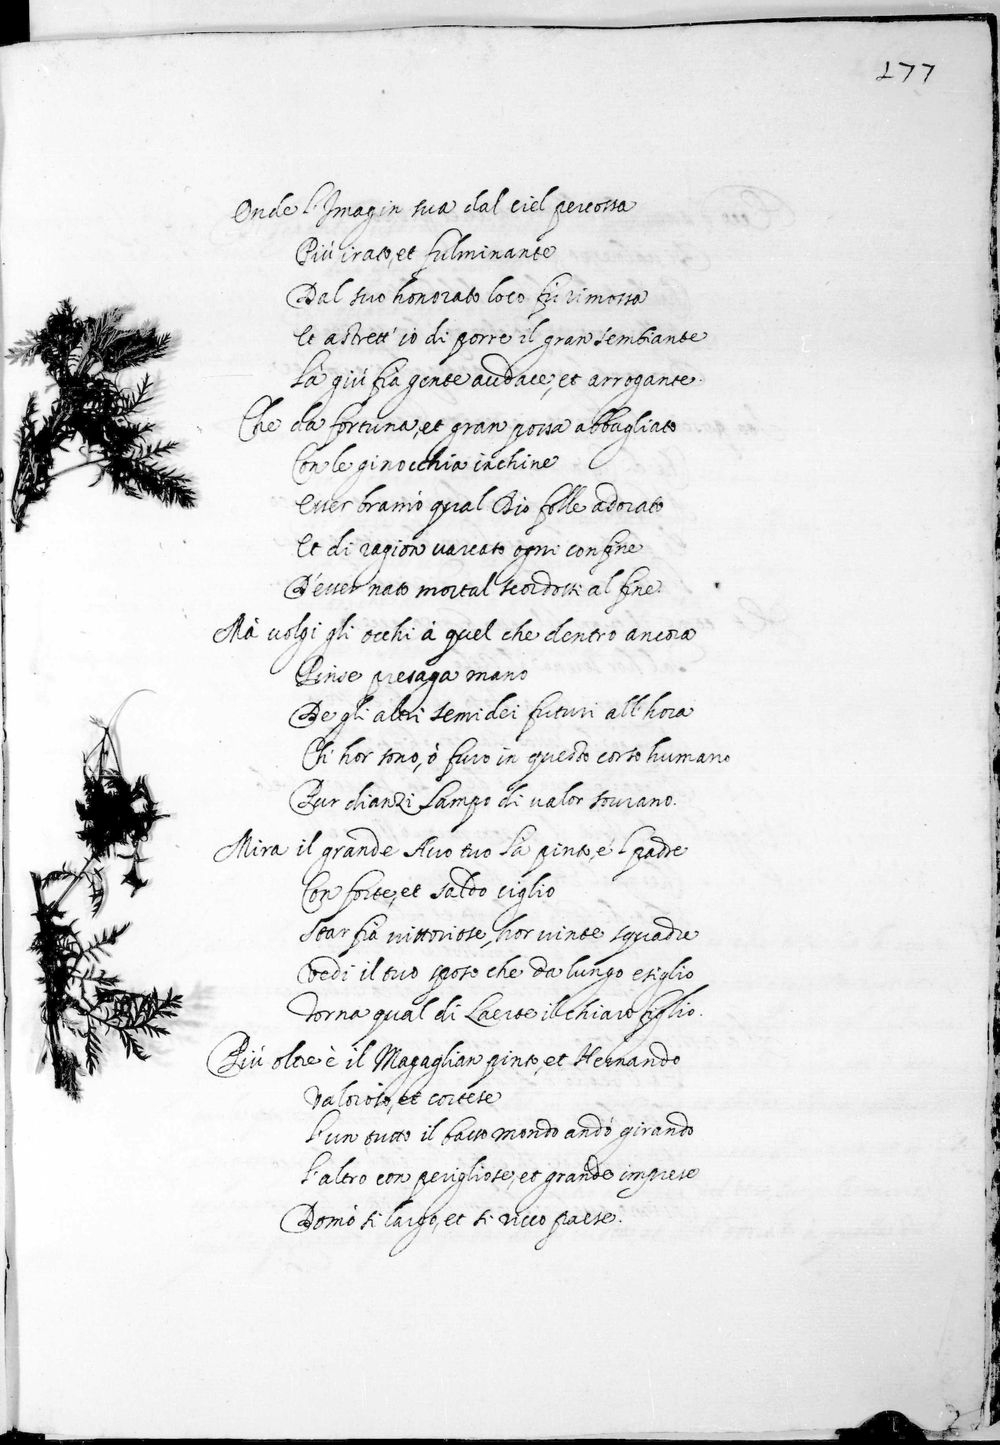 177
Onde l'Imagin sua dal ciel percossa
Più irato, et fulminante
Dal suo honorato loco fù rimossa
Et astrett' io di porre il gran sembiante
Là giù frà gente audace, et arrogante.
Che da fortuna, et gran possa abbagliato
Con le ginocchia inchine
Esser bramò qual Dio folle adorato
Et di ragion varcato ogni confine
D'esser nato mortal scordossi al fine.
Mà volgi gli occhi à quel che dentro ancora
Pinse presaga mano
De gli altri semidei futuri all'hora
Ch' hor sono, ò furo in questo corso humano
Pur dianzi Lampo di valor sovrano.
Mira il grande Avo tuo là pinto, e 'l padre
Con forte, et saldo ciglio
Star frà vittoriose, hor vinte squadre
Vedi il tuo sposo che da lungo esiglio
Torna qual di Laerte il chiaro figlio.
Più oltre è il Magaglian pinto, et Hernando
Valoroso, et cortese
L'un tutto il basso mondo andò girando
L'altro con perigliose, et grande imprese
Domò sì largo, et sì ricco paese.